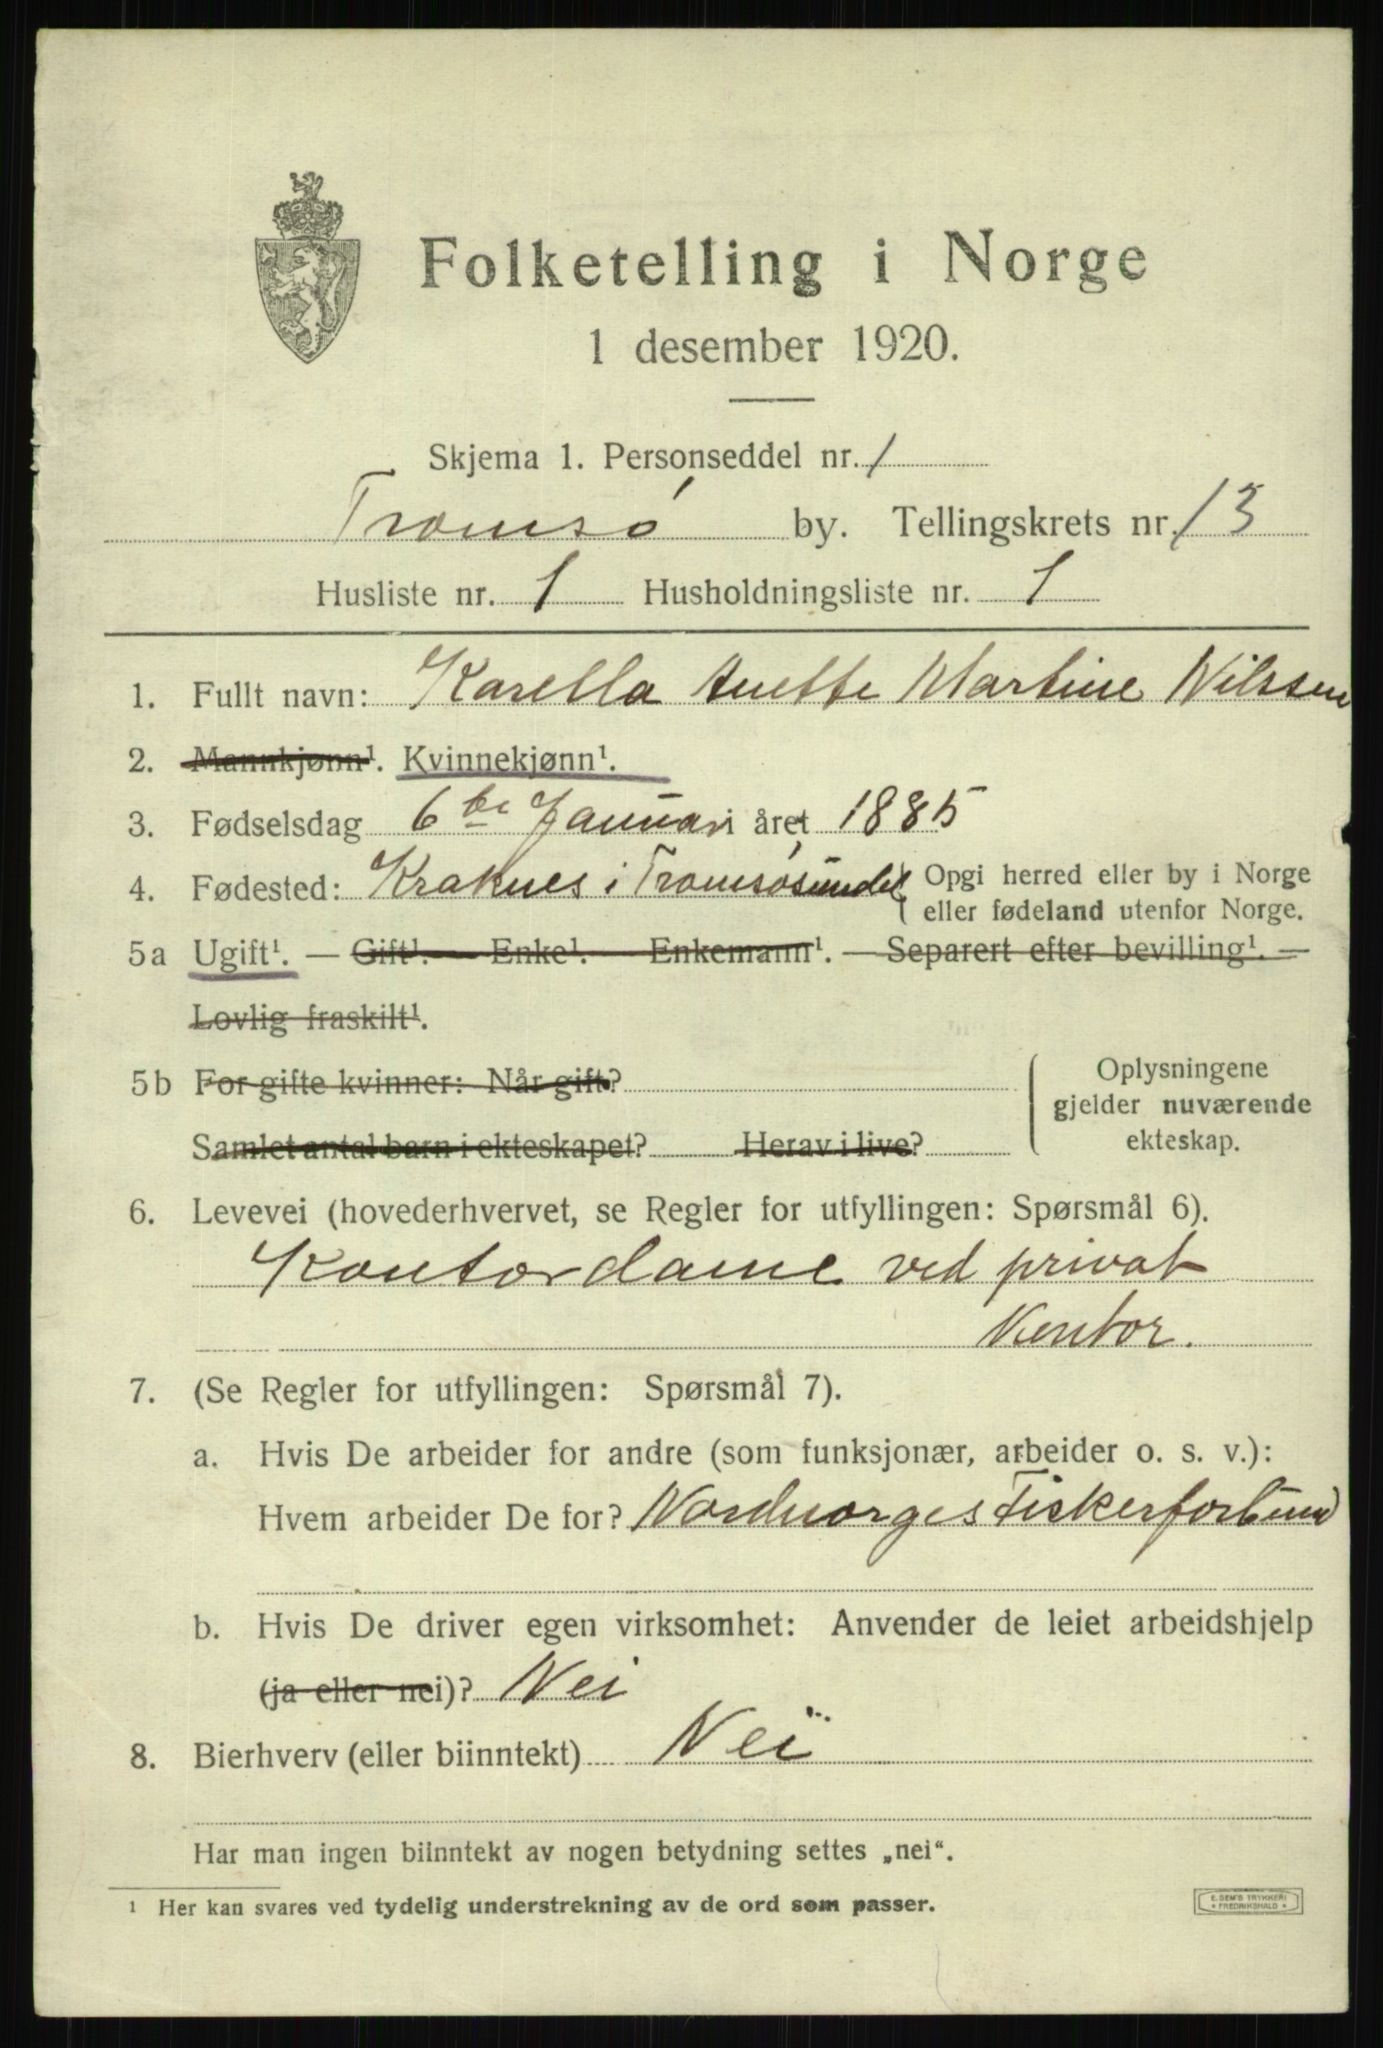 Folketelling i Norge
1 desember 1920.
Skjema 1. Personseddel nr. 1
Tromsø by. Tellingskrets nr. 13
Husliste nr. 1 Husholdningsliste nr. 1
1. Fullt navn: Karella Anette Martine Nilssen
2. Mannkjønn¹. Kvinnekjønn¹.
3. Fødselsdag 6te Januari året 1885
4. Fødested: Kraknes i Tromsøsundet { Opgi herred eller by i Norge
eller fødeland utenfor Norge.
5a Ugift¹. — Gift¹. — Enke¹. — Enkemann¹. — Separert efter bevilling¹. —
Lovlig fraskilt¹.
5b For gifte kvinner: Når gift?
Samlet antal barn i ekteskapet? Herav i live?
Oplysningene
gjelder nuværende
ekteskap.
6. Levevei (hovederhvervet, se Regler for utfyllingen: Spørsmål 6).
Kontordame ved privat
Kontor.
7. (Se Regler for utfyllingen: Spørsmål 7).
a. Hvis De arbeider for andre (som funksjonær, arbeider o. s. v.):
Hvem arbeider De for? Nordnorges Fiskerforbund
b. Hvis De driver egen virksomhet: Anvender de leiet arbeidshjelp
(ja eller nei)? Nei
8. Bierhverv (eller biinntekt) Nei
Har man ingen biinntekt av nogen betydning settes „nei“.
¹ Her kan svares ved tydelig understrekning av de ord som passer.
E. SEM'S TRYKKERI
* FREDRIKSHALD *